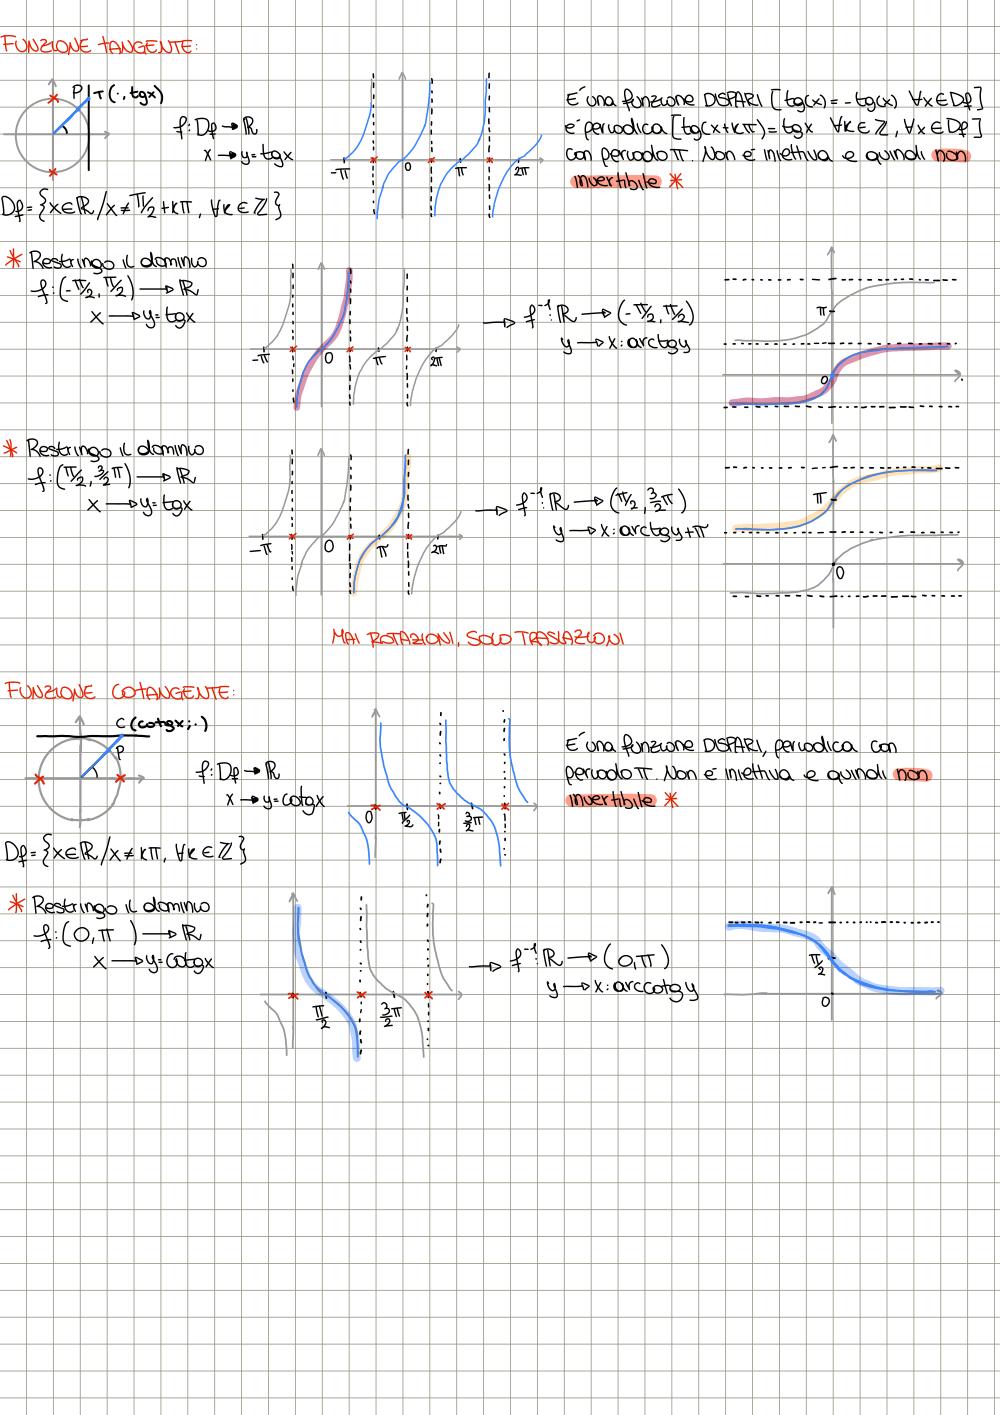 FUNZIONE TANGENTE:
P T (·, tgx)
f: Df → ℝ
x → y= tgx
-π 0 π 2π
E' una funzione DISPARI [tg(x) = -tg(x) ∀x∈Df]
e' periodica [tg(x+kπ)= tgx ∀k∈ℤ, ∀x∈Df]
con periodo π. Non e' iniettiva e quindi non
invertibile *
Df= {x∈ℝ/x≠π/2+kπ, ∀k∈ℤ}
* Restringo il dominio
f: (-π/2, π/2) → ℝ
x → y= tgx
-π 0 π 2π
→ f⁻¹: ℝ → (-π/2, π/2)
y → x: arctgy
π
0
* Restringo il dominio
f: (π/2, 3/2π) → ℝ
x → y= tgx
-π 0 π 2π
→ f⁻¹: ℝ → (π/2, 3/2π)
y → x: arctgy+π
π
0
MAI ROTAZIONI, SOLO TRASLAZIONI
FUNZIONE COTANGENTE:
C (cotgx; ·)
P
f: Df → ℝ
x → y= cotgx
0 π/2 3/2π
E' una funzione DISPARI, periodica con
periodo π. Non e' iniettiva e quindi non
invertibile *
Df= {x∈ℝ/x≠kπ, ∀k∈ℤ}
* Restringo il dominio
f: (0, π ) → ℝ
x → y= cotgx
π/2 3/2π
→ f⁻¹: ℝ → (0, π)
y → x: arccotgy
π/2
0